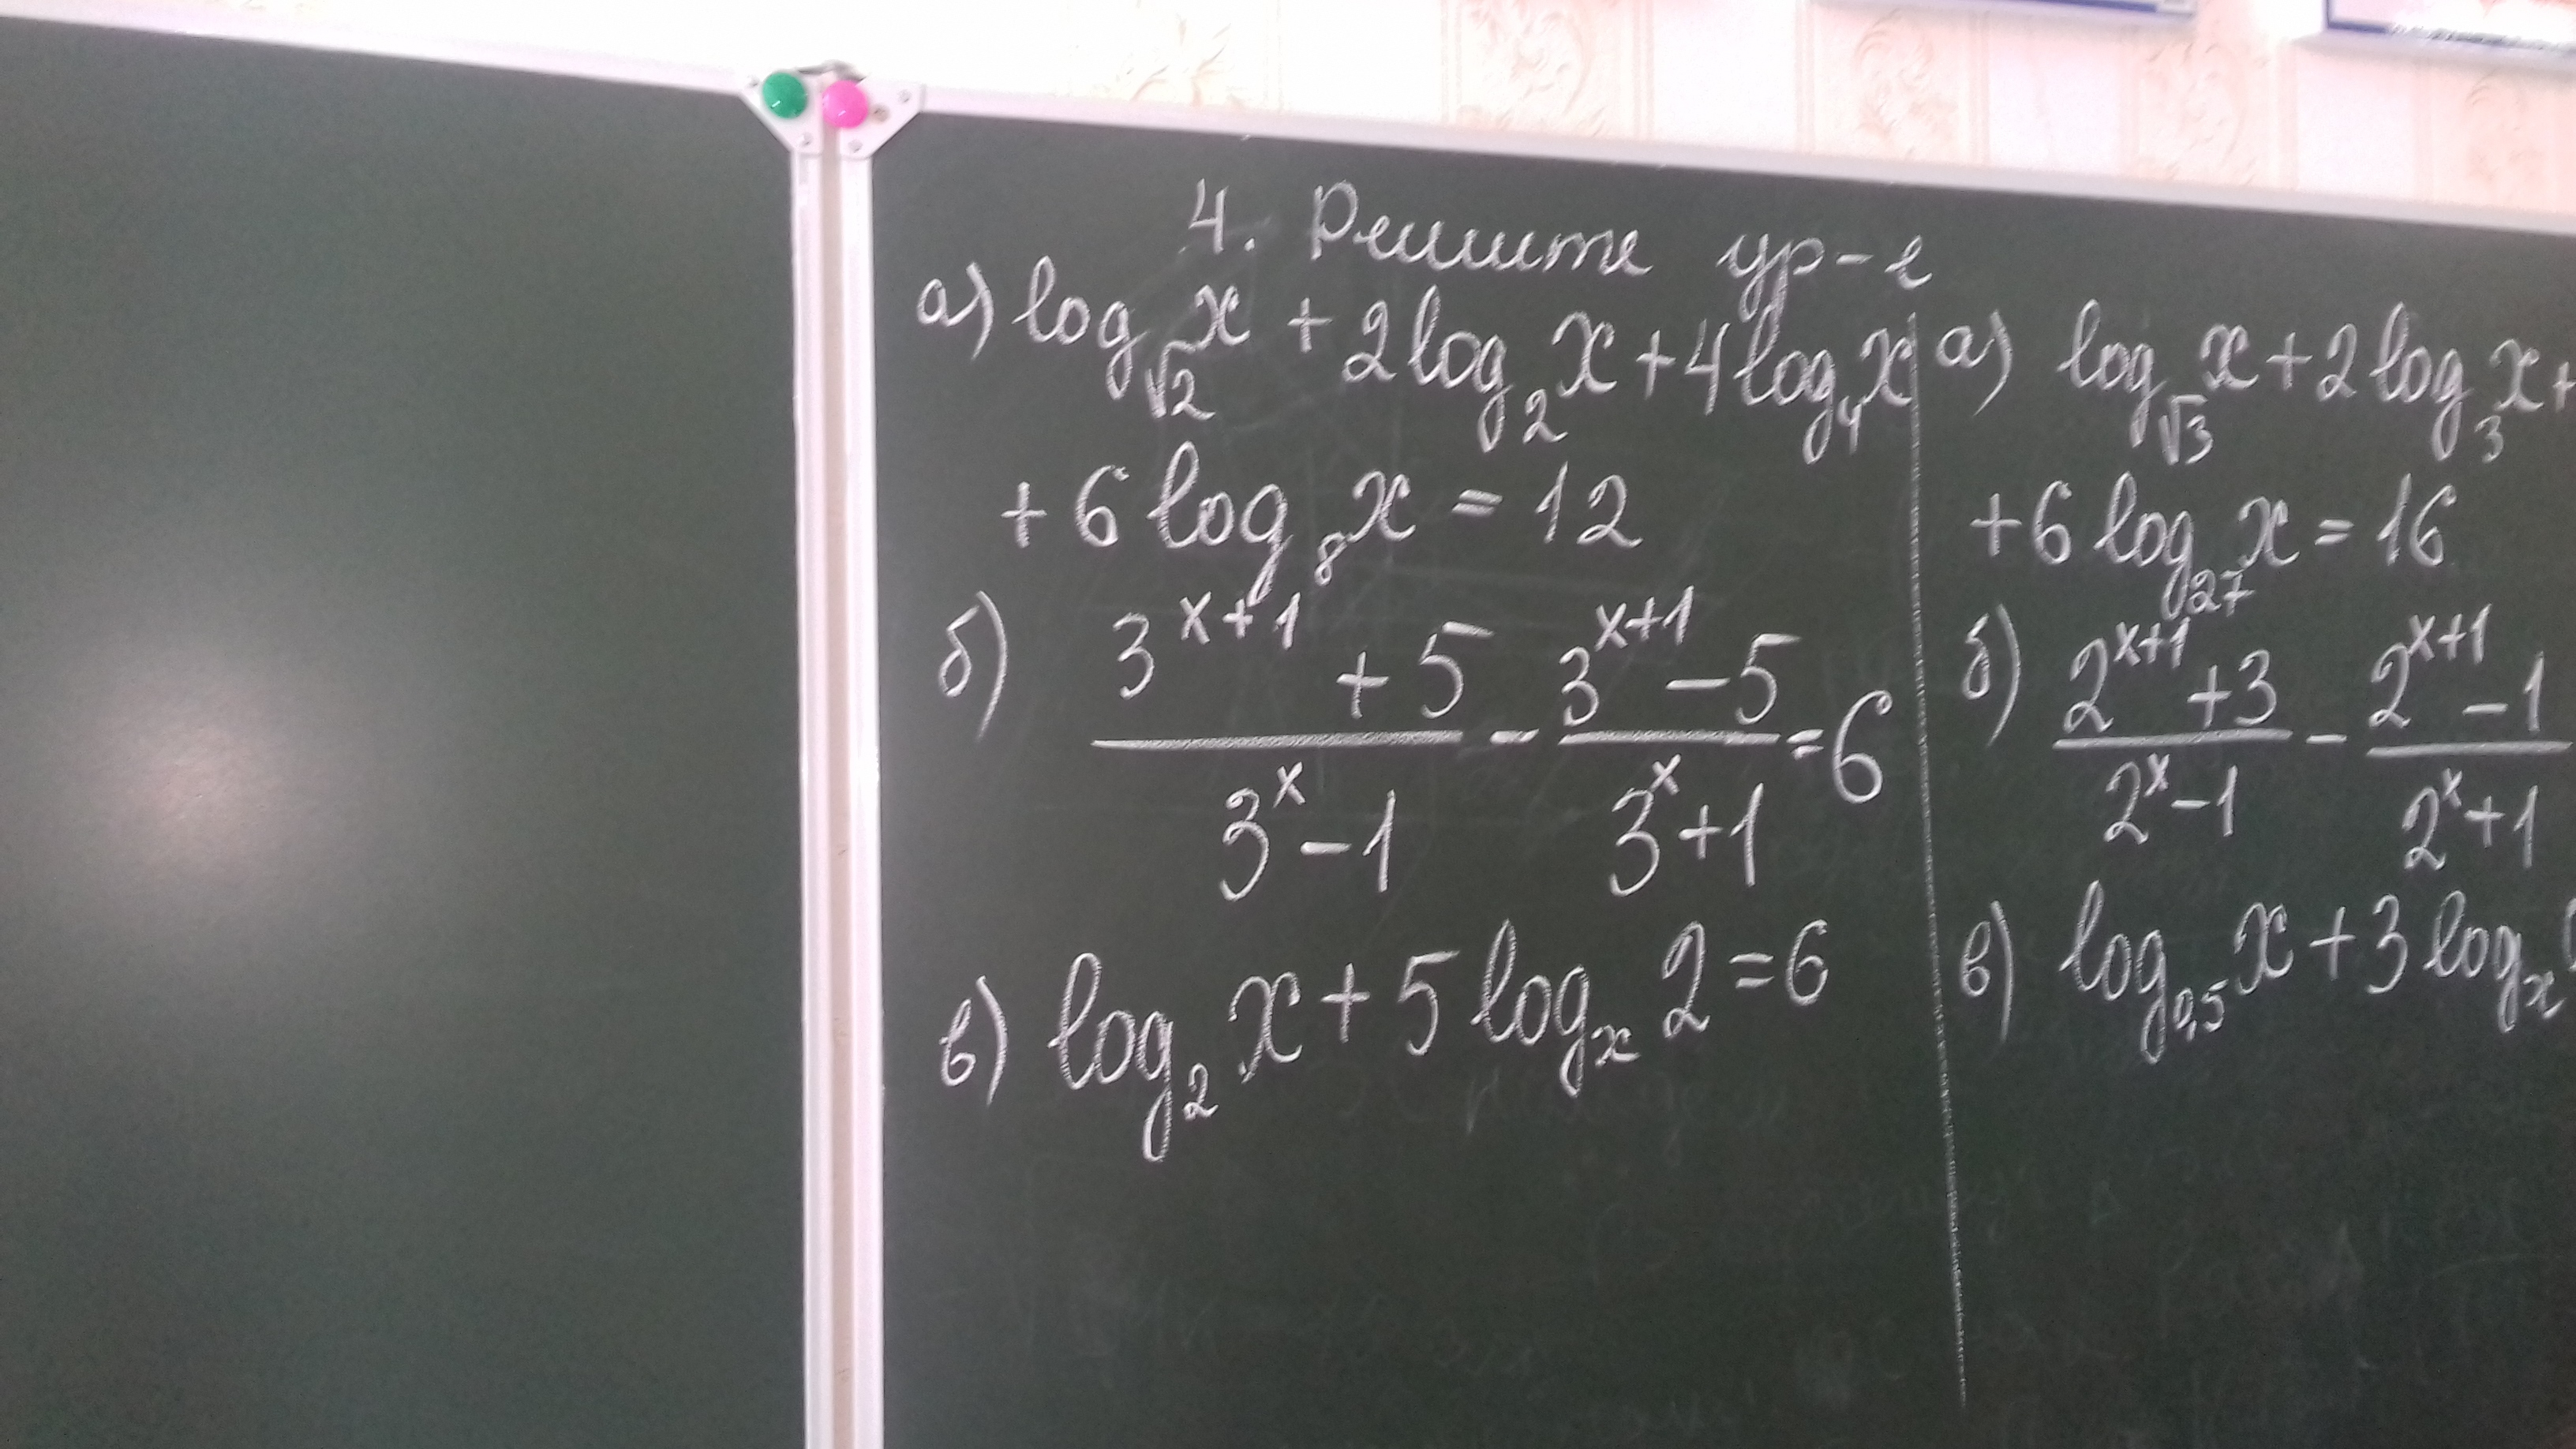 4. Решите ур-е
а) log_√2 x + 2 log_2 x + 4 log_4 x
+ 6 log_8 x = 12
б) (3^(x+1) + 5)/(3^x - 1) - (3^(x+1) - 5)/(3^x + 1) = 6
в) log_2 x + 5 log_x 2 = 6
а) log_√3 x + 2 log_3 x +
+ 6 log_27 x = 16
б) (2^(x+1) + 3)/(2^x - 1) - (2^(x+1) - 1)/(2^x + 1)
в) log_0,5 x + 3 log_x